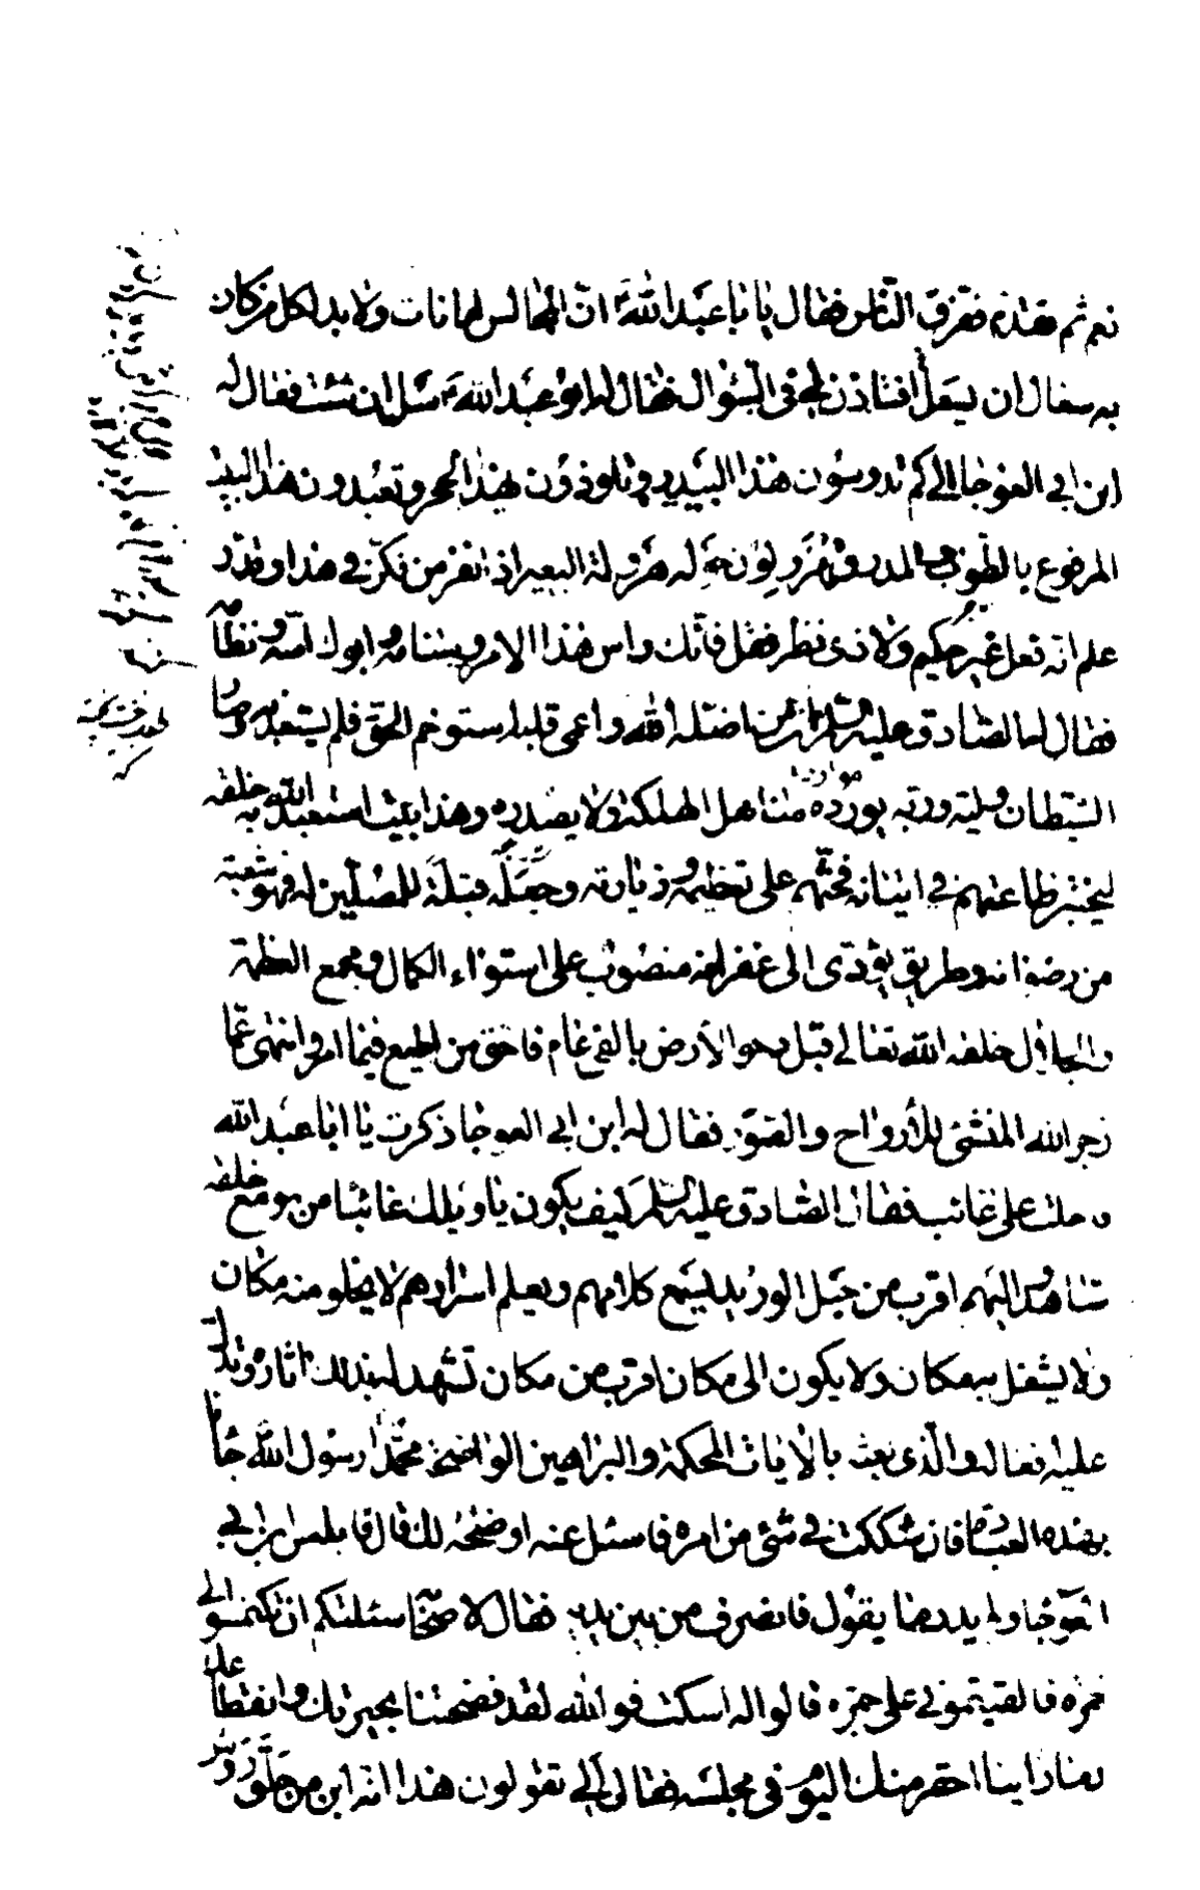 نعم ثم تقدم ففرق الناس فقال يا با عبد الله ان المجالس امانات ولا بد لكل من كان
به سعال ان يسعل افتاذن لي في السؤال فقال له ابو عبد الله سل ان شئت فقال له
ابن ابي العوجا الى كم تدوسون هذا البيدر وتلوذون بهذا الحجر وتعبدون هذا البيت
المرفوع بالطوب والمدر وتهرولون حوله هرولة البعير اذا نفر من فكر في هذا وقدر
علم انه فعل غير حكيم ولا ذي نظر فقل فانك راس هذا الامر وسنامه وابوك اسه ونظامه
فقال له الصادق عليه السلم ان من اضله الله واعمى قلبه استوخم الحق فلم يستعذبه وصار
الشيطان وليه وربه يورده مناهل الهلكة ولا يصدره وهذا بيت استعبد الله به خلقه
ليختبر طاعتهم في اتيانه فحثهم على تعظيمه وزيارته وجعله قبلة للمصلين له فهو شعبة
من رضوانه وطريق يؤدى الى غفرانه منصوب على استواء الكمال ومجمع العظمة
والجلال خلقه الله تعالى قبل دحو الأرض بالفي عام فاحق من اطيع فيما امر وانتهى عما
زجر الله المنشئ للأرواح والصور فقال له ابن ابي العوجا ذكرت يا ابا عبد الله
فاحلت على غائب فقال الصادق عليه السلم كيف يكون يا ويلك غائبا من هو مع خلقه
شاهد واليهم اقرب من حبل الوريد يسمع كلامهم ويعلم اسرارهم لا يخلو منه مكان
ولا يشغل به مكان ولا يكون الى مكان اقرب من مكان تشهد له بذلك اثاره وتدل
عليه افعاله والذى بعثه بالأيات المحكمة والبراهين الواضحة محمد رسول الله جانا
بهذه العبادة فان شككت في شئ من امره فاسئل عنه اوضحه لك قال فابلس ابن ابي
العوجا ولم يدر ما يقول فانصرف من بين يديه فقال لاصحابه سئلتكم ان تلتمسوا لي
خمره فالقيتموني على جمره قالوا له اسكت فوالله لقد فضحتنا بحيرتك وانقطاعك
وما راينا احقر منك اليوم في مجلسه فقال الي تقولون هذا انه ابن من حلق رؤس